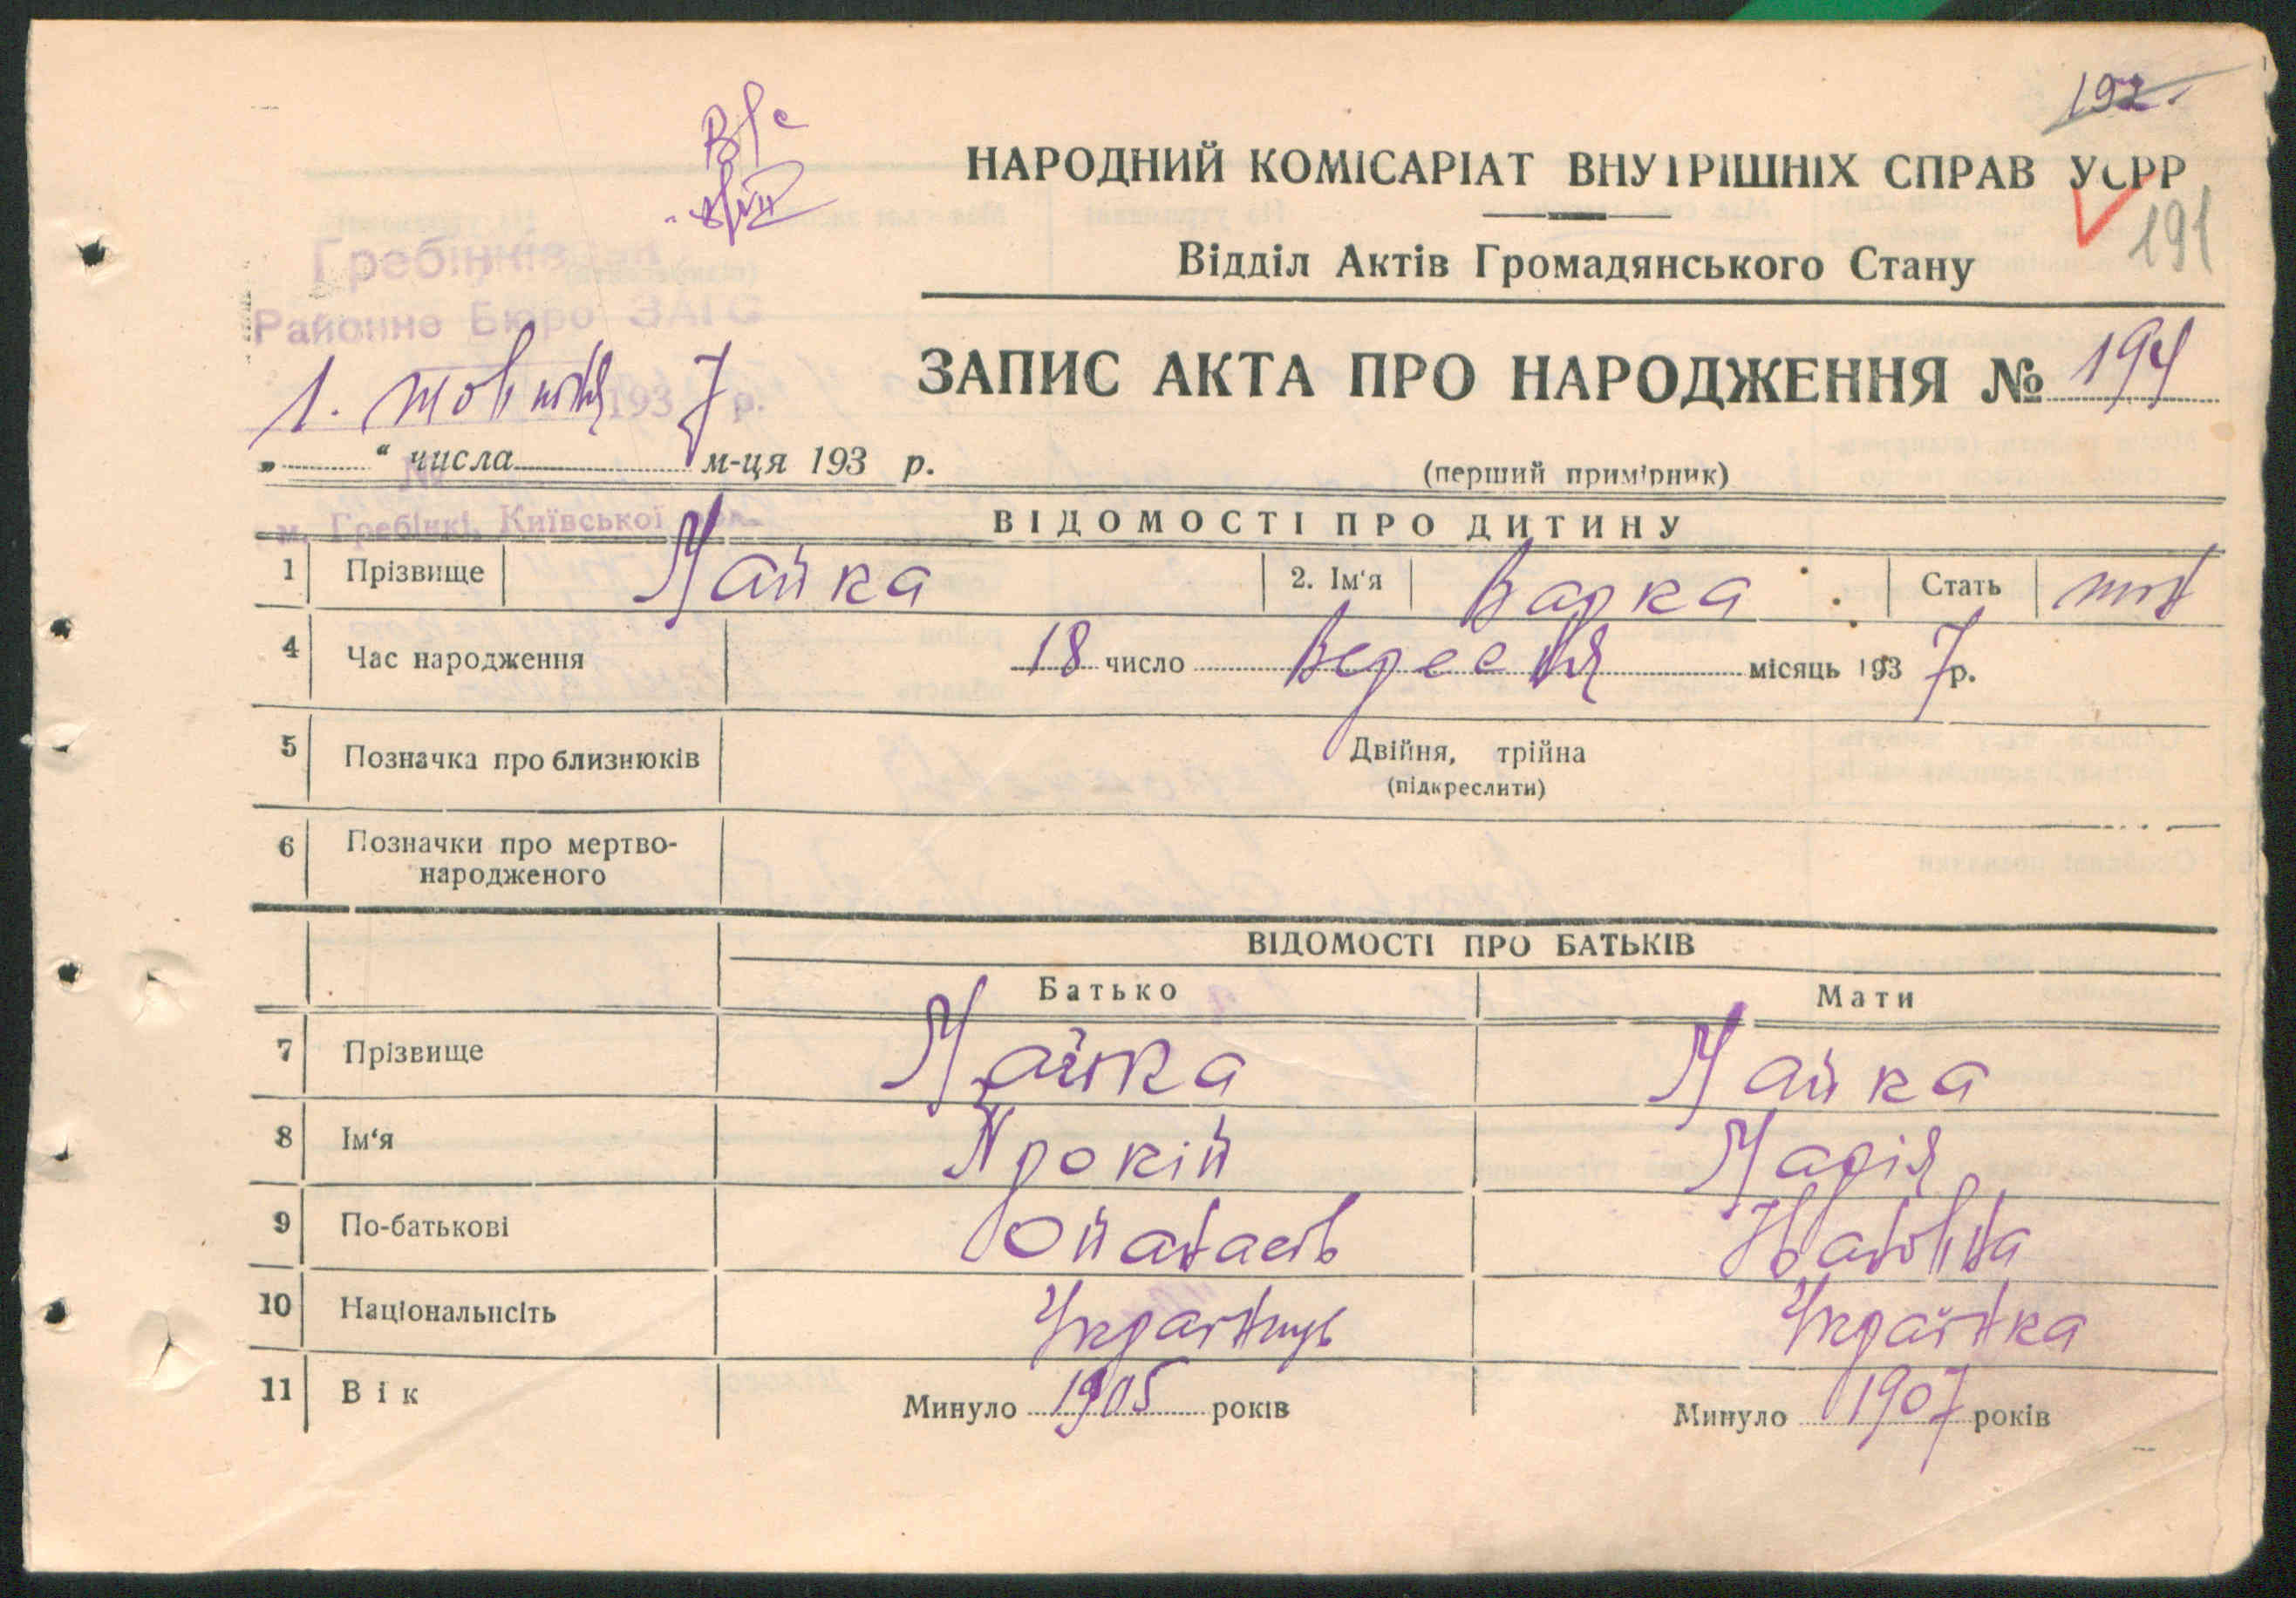 192
НАРОДНИЙ КОМІСАРІАТ ВНУТРІШНІХ СПРАВ УСРР
191
Відділ Актів Громадянського Стану
Районне Бюро ЗАГС
ЗАПИС АКТА ПРО НАРОДЖЕННЯ № 194
1. жовтня 1937 р.
„ “ числа м-ця 193 р.
(перший примірник)
№
м. Гребінкі, Київської обл.
ВІДОМОСТІ ПРО ДИТИНУ
1 Прізвище Майка 2. Ім‘я Варка Стать жін
4 Час народження 18 число Вересня місяць 1937 р.
5 Позначка про близнюків Двійня, трійна
(підкреслити)
6 Позначки про мертво-
народженого
ВІДОМОСТІ ПРО БАТЬКІВ
Батько Мати
7 Прізвище Майка Майка
8 Ім‘я Прокій Марія
9 По-батькові Опанасів Іванівна
10 Національнсіть Українець Українка
11 Вік Минуло 1905 років Минуло 1907 років